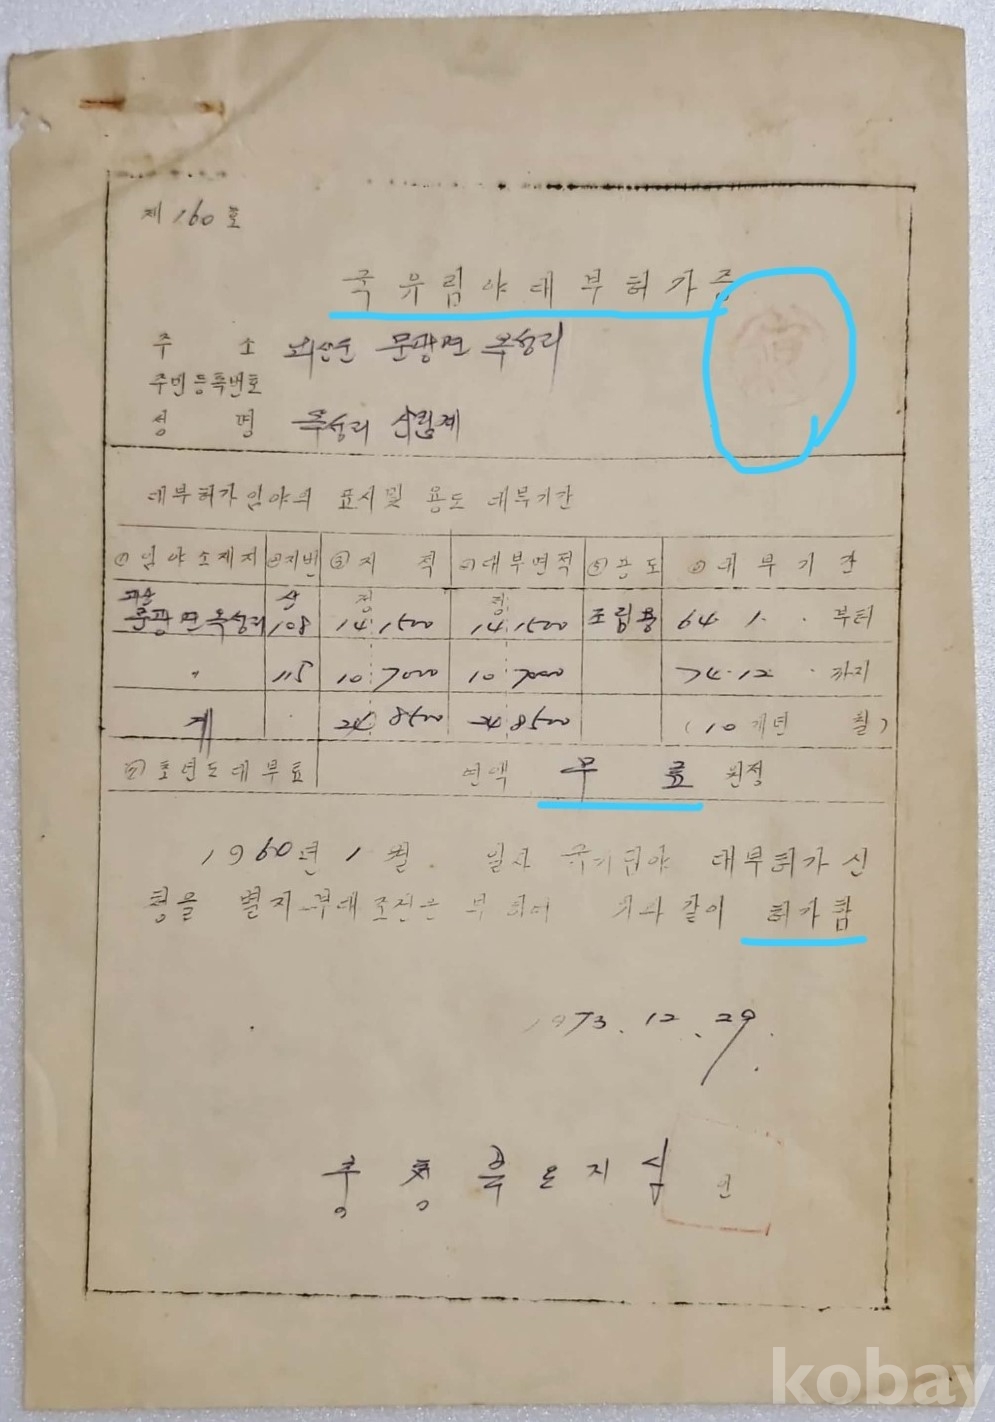 제 160 호
국유림야대부허가증
주 소 괴산군 문광면 옥성리
주민등록번호
성 명 옥성리 산림계
대부허가임야의 표시및 용도 대부기간
① 임야소재지 ② 지번 ③ 지 적 ④ 대부면적 ⑤ 용도 ⑥ 대 부 기 간
괴산 산 정 정
문광면 옥성리 108 14 1500 14 1500 조림용 64. 1. . 부터
〃 115 10 7000 10 7000 74. 12 . 까지
계 24 8500 24 8500 (10 개년 월)
⑦ 초년도대부료 연액 무 료 원정
1960년 1 월 . 일자 국유임야 대부허가 신
청을 별지 부대조건을 부 하여 위와 같이 허가함
1973. 12. 29.
충 청 북 도 지 사 인
kobay